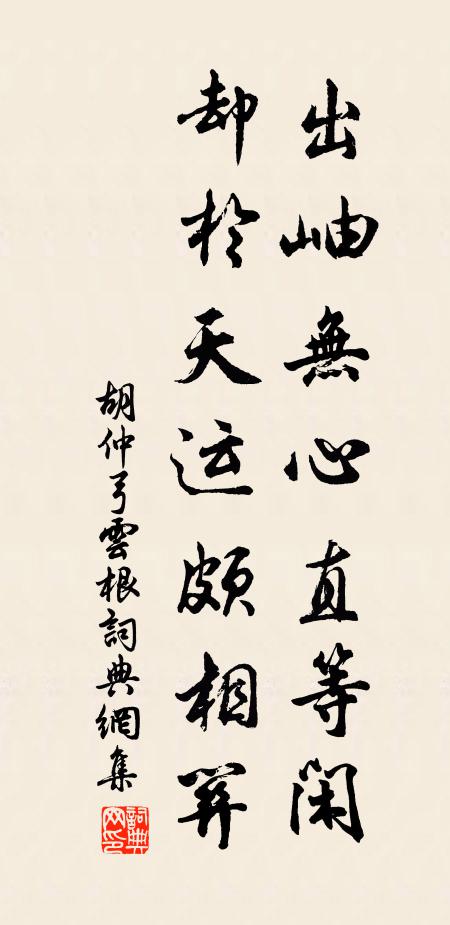 出岫無心直等閑
却於天运頗相關
胡仲弓雲根詞典網集
詞典网印